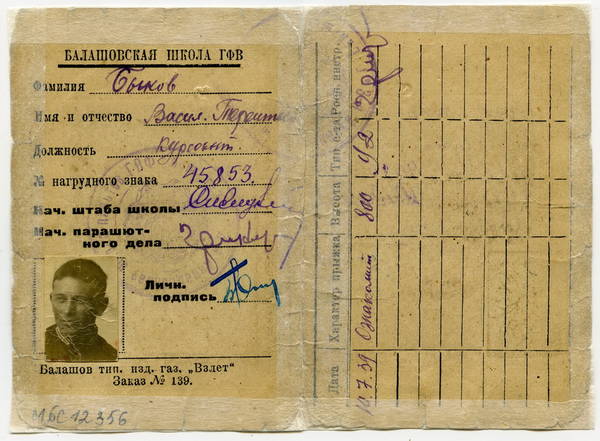 БАЛАШОВСКАЯ ШКОЛА ГФВ
Фамилия Быков
Имя и отчество Васил. Терент
Должность Курсант
№ нагрудного знака 45853.
Нач. штаба школы
Нач. парашют-
ного дела
Личн.
подпись
Балашов тип. изд. газ. „Взлет"
Заказ № 139.
МБС 12356
Дата Характер прыжка Высота Тип с-та Росп. инстр.
10.7.39 Ознакомит 800 У2